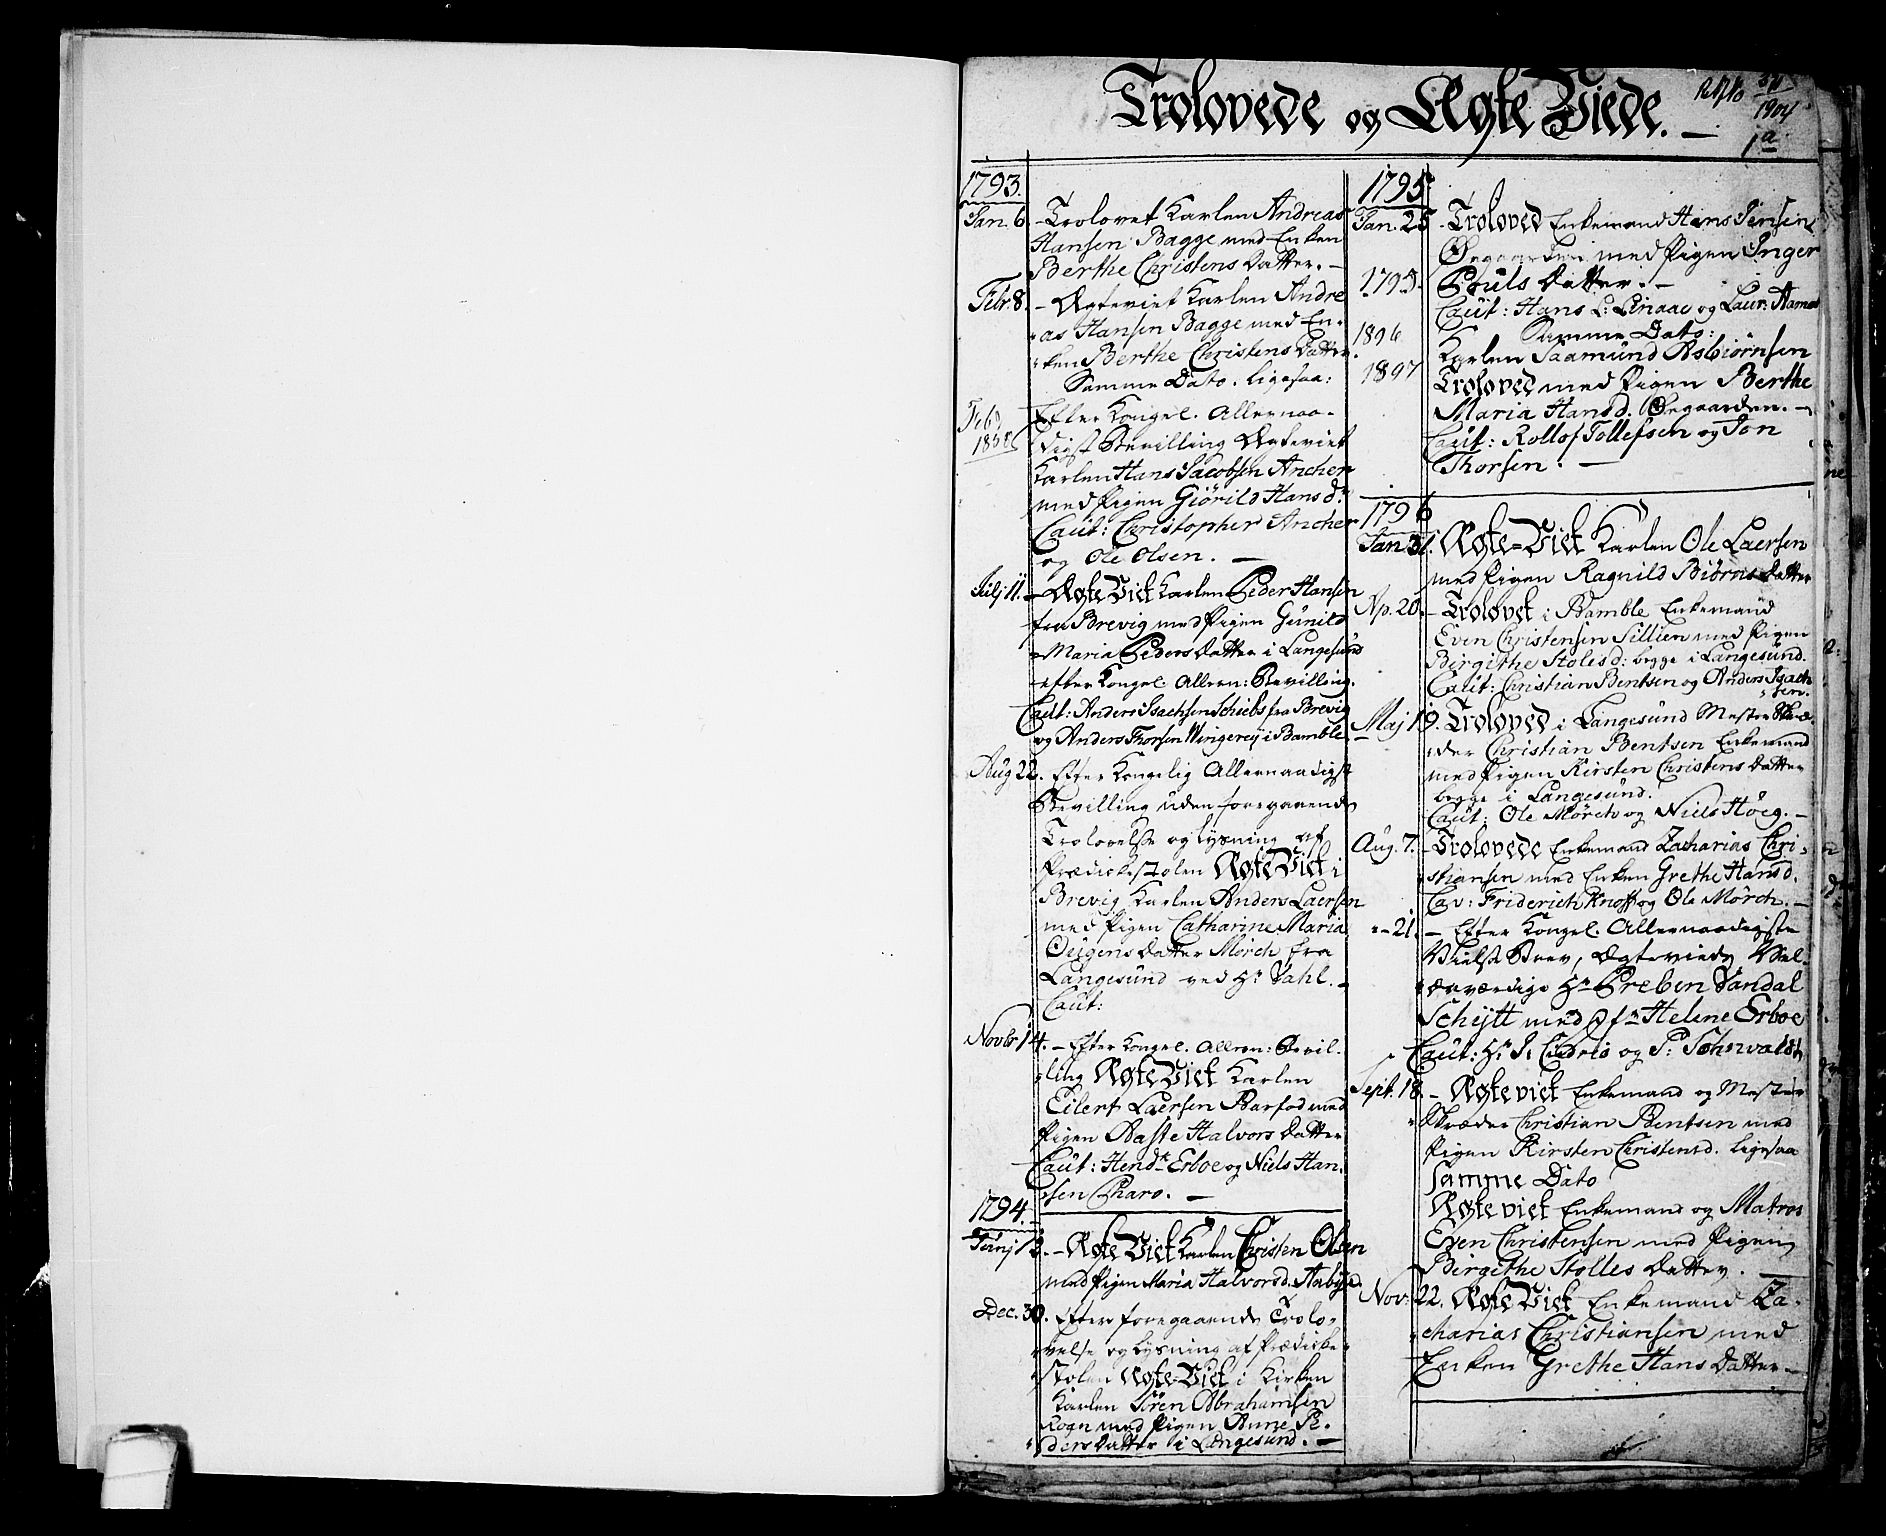 Trolovede og Ægte Viede. —
1904
1 a
1793.
Jan. 6. – Trolovet Karlen Andreas
Hansen Bagge med Enken
Berthe Christens Datter. —
Febr. 8. – Ægteviet Karlen Andre
as Hansen Bagge med En-
ken Berthe Christens Datter
Samme Dato. ligesaa:
Feb.
Efter Kongel. Allernaa-
digst Bevilling Ægteviet
Karlen Hans Jacobsen Ancher
med Pigen Giörild Hans dr
Caut: Christopher Ancher
og Ole Olsen. —
Julj 11. – Ægte Viet Karlen Peder Hansen
fra Brevig med Pigen Gunild
Maria Peders Datter i Langesund
efter Kongel. Allern: Bevilling.
Caut: Anders Isachsen Schiebs fra Brevig
og Anders Thorsen Wingereÿ i Bamble.
Aug 22. Efter Kongelig Allernaadigst
Bevilling uden foregaaende
Trolovelse og Lysning af
Prædickestolen Ægte Viet i
Brevig Karlen Anders Laersen
med Pigen Catharine Maria
Ouigens Datter Mörch fra
Langesund ved Hr Dahl. –
Caut:
Novbr 14. – Efter Kongel. Allern: Bevil-
ling Ægte Viet Karlen
Eilert Laersen Barfod med
Pigen Aaste Halvors Datter
Caut: Hendk Erboe og Niels Han,
sen Charo. —
1794.
Junj 13. – Ægte Viet Karlen Christen Olsen
med Pigen Maria Halvorsd. Aabye.
Dec. 30. Efter foregaaende Trolo-
velse og Lysning af Prædicke-
stolen Ægte-Viet i Kirken
Karlen Sören Abrahamsen
Rogn med Pigen Anne Pe-
ders Datter i Langesund. —
1795
Jan. 25 – Troloved Enkemand Hans Jensen
Øegaarden med Pigen Inger
1795. Pouls Datter. –
Caut: Hans L: Linaae og Laur: Aamodt
1896
Samme Dato:
Karlen Saamund Asbiørnsen
1897
Troloved med Pigen Berthe
Maria Hansd. Øegaarden. –
Caut: Rollof Tollefsen og Jon
Thorsen. —
1796
Jan. 31. Ægte-Viet Karlen Ole Laersen
med Pigen Ragnild Biörns Datter
Ap. 20. – Trolovet i Bamble Enkemand
Even Christensen Sillien med Pigen
Birgithe Stolesd: begge i Langesund.
Caut: Christian Bentsen og Anders Isach
sen.
Maj 19. Troloved i Langesund Mester Skræ-
der Christian Bentsen Enkemand
med Pigen Kirsten Christens Datter
begge i Langesund.
Caut: Ole Mörch og Niels Höeg. –
Aug. 7. – Trolovede Enkemand Zacharias Chri-
stiansen med Enken Grethe Hansd.
Cav: Friderich Knoff og Ole Mörch. –
" – 21. – Efter Kongel. Allernaadigste
Vielse Brev, Ægteviede Vel-
ærværdige Hr Preben Vandal
Schÿtt med Jfr Helene Erboe
Caut: Hr J. Cudrio og P: Schnvaldt
Sept. 18. – Ægteviet Enkemand og Mester
Skræder Christian Bentsen med
Pigen Kirsten Christensd. ligesaa
samme Dato
Ægteviet Enkemand og Matros
Even Christensen med Pigen
Birgithe Stolles Datter.
Nov. 22. Ægte Viet Enkemand Za-
charias Christiansen med
Enken Grethe Hans Datter —